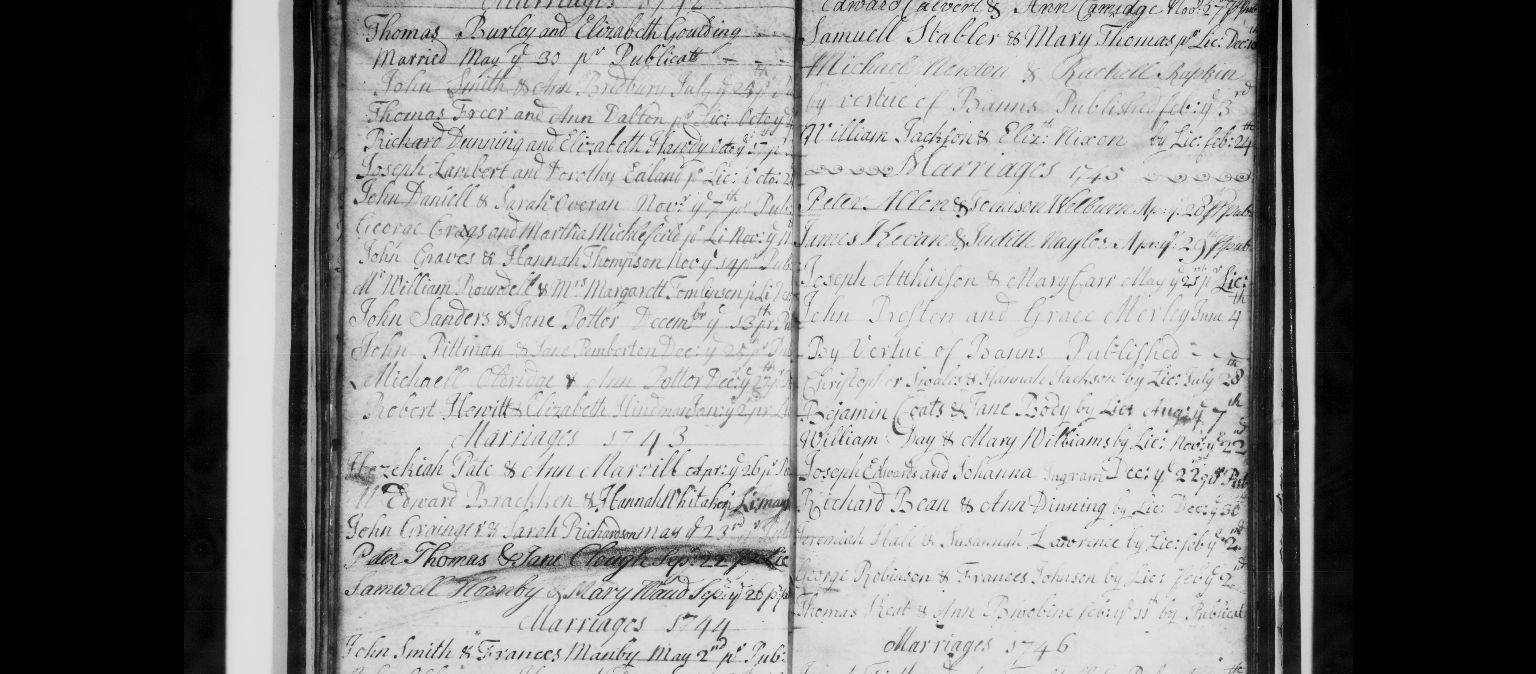 Marriages 1742
Thomas Burley and Elizabeth Goulding
Married May ye 30 pr Publicatt
John Smith & Ann Bradbury July ye 24th pr Pu
Thomas Freer and Ann Dalton pr Lic: Octo ye
Richard Dunning and Elizabeth Handy Octo ye 17th p
Joseph Lambert and Dorothy Ealand pr Lic: Octo: 2
John Daniell & Sarah Overan Novr: ye 7th pr Pub
George Crags and Martha pr Li Nov: ye
John Graves & Hannah Thompson Nov ye 14 pr Pub
Mr William Roundell & Mrs Margarett Tomlinson p Li
John Sanders & Jane Potter Decembr ye 13th pr Pu
John Pittman & Jane Pemberton Dec: ye 25 pr Pub
Michaell Oldridge & Ann Potter Dec: ye 27th p
Robert Hewitt & Elizabeth Hindman Jan: ye 2 pr Li
Marriages 1743
Hezekiah Pate & Ann Marvill Apr: ye 26 pr Pu
Mr Edward Brackhen & Hannah Whitaker Li: may
John Grainger & Sarah Richardson may ye 23rd pr Pub
Peter Thomas & Jane Clough Sepr 22 pr Lic
Samwell Hornby & Mary Waud Sep: ye 26 pr p
Marriages 1744
John Smith & Frances Manby May 2nd pr Pub:
Edward Calvert & Ann Camidge Novr: 27 p pub
Samuell Stabler & Mary Thomas pr Lic: Dec:
Michael Newton & Rachell Rapkin
by vertue of Banns Published feb: ye 3rd
William Jackson & Elizth: Nixon by Lic: feb: 24th
Marriages 1745
Peter Allen & Jenison Welburn Apr: ye 20th p pub
James Kevan & Judith Naylor Apr: ye 29th p pub
Joseph Atthinson & Mary Carr May ye 25th pr Lic:
John Preston and Grace Morley June 4th
By Vertue of Banns Published
Christopher Swales & Hannah Jackson by Lic: July 28th
Bejamin Coats & Jane Body by Lic: Aug: ye 7th
William Day & Mary Williams by Lic: Nov: ye 22nd
Joseph Edwards and Johanna Ingram Dec: ye 22 pr Pub
Richard Bean & Ann Dinning by Lic: Dec: ye 30
Jeremiah Hall & Susannah Lawrence by Lic: feb ye 2nd
George Robinson & Frances Johnson by Lic: feb ye 2nd
Thomas Kent & Ann feb: ye 11th by Publicat
Marriages 1746